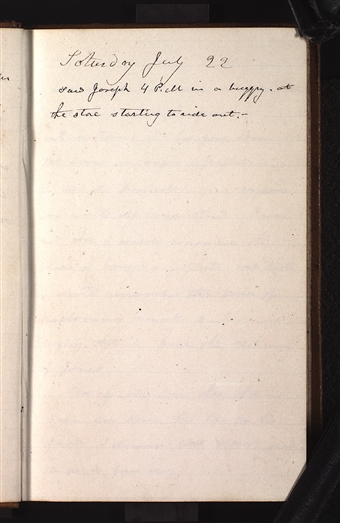 Saturday July 22
saw Joseph 4 P.M in a buggy. at
the store starting to ride out.-